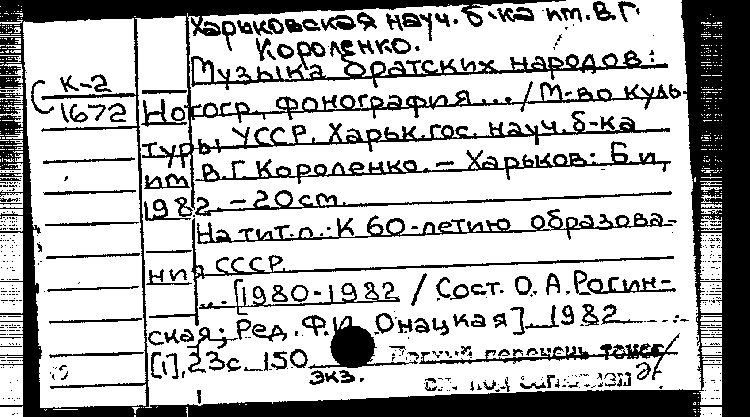 Харьковская науч. б-ка им. В.Г.
Короленко.
К-2
1672
Музыка братских народов:
Нотогр. фонография... / М-во куль-
туры УССР. Харьк. гос. науч. б-ка
им. В.Г. Короленко. – Харьков: Б.и.,
1982. – 20 см.
На тит. л.: К 60-летию образова-
ния СССР.
... [1980-1982 / Сост. О.А. Рогин-
ская; Ред. Ф.И. Онацкая]. 1982
[1], 23с. 150
экз.
Полный перечень томов
см. под